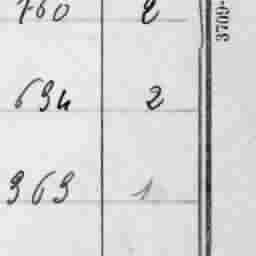 760 2
634 2
363 1
3709-